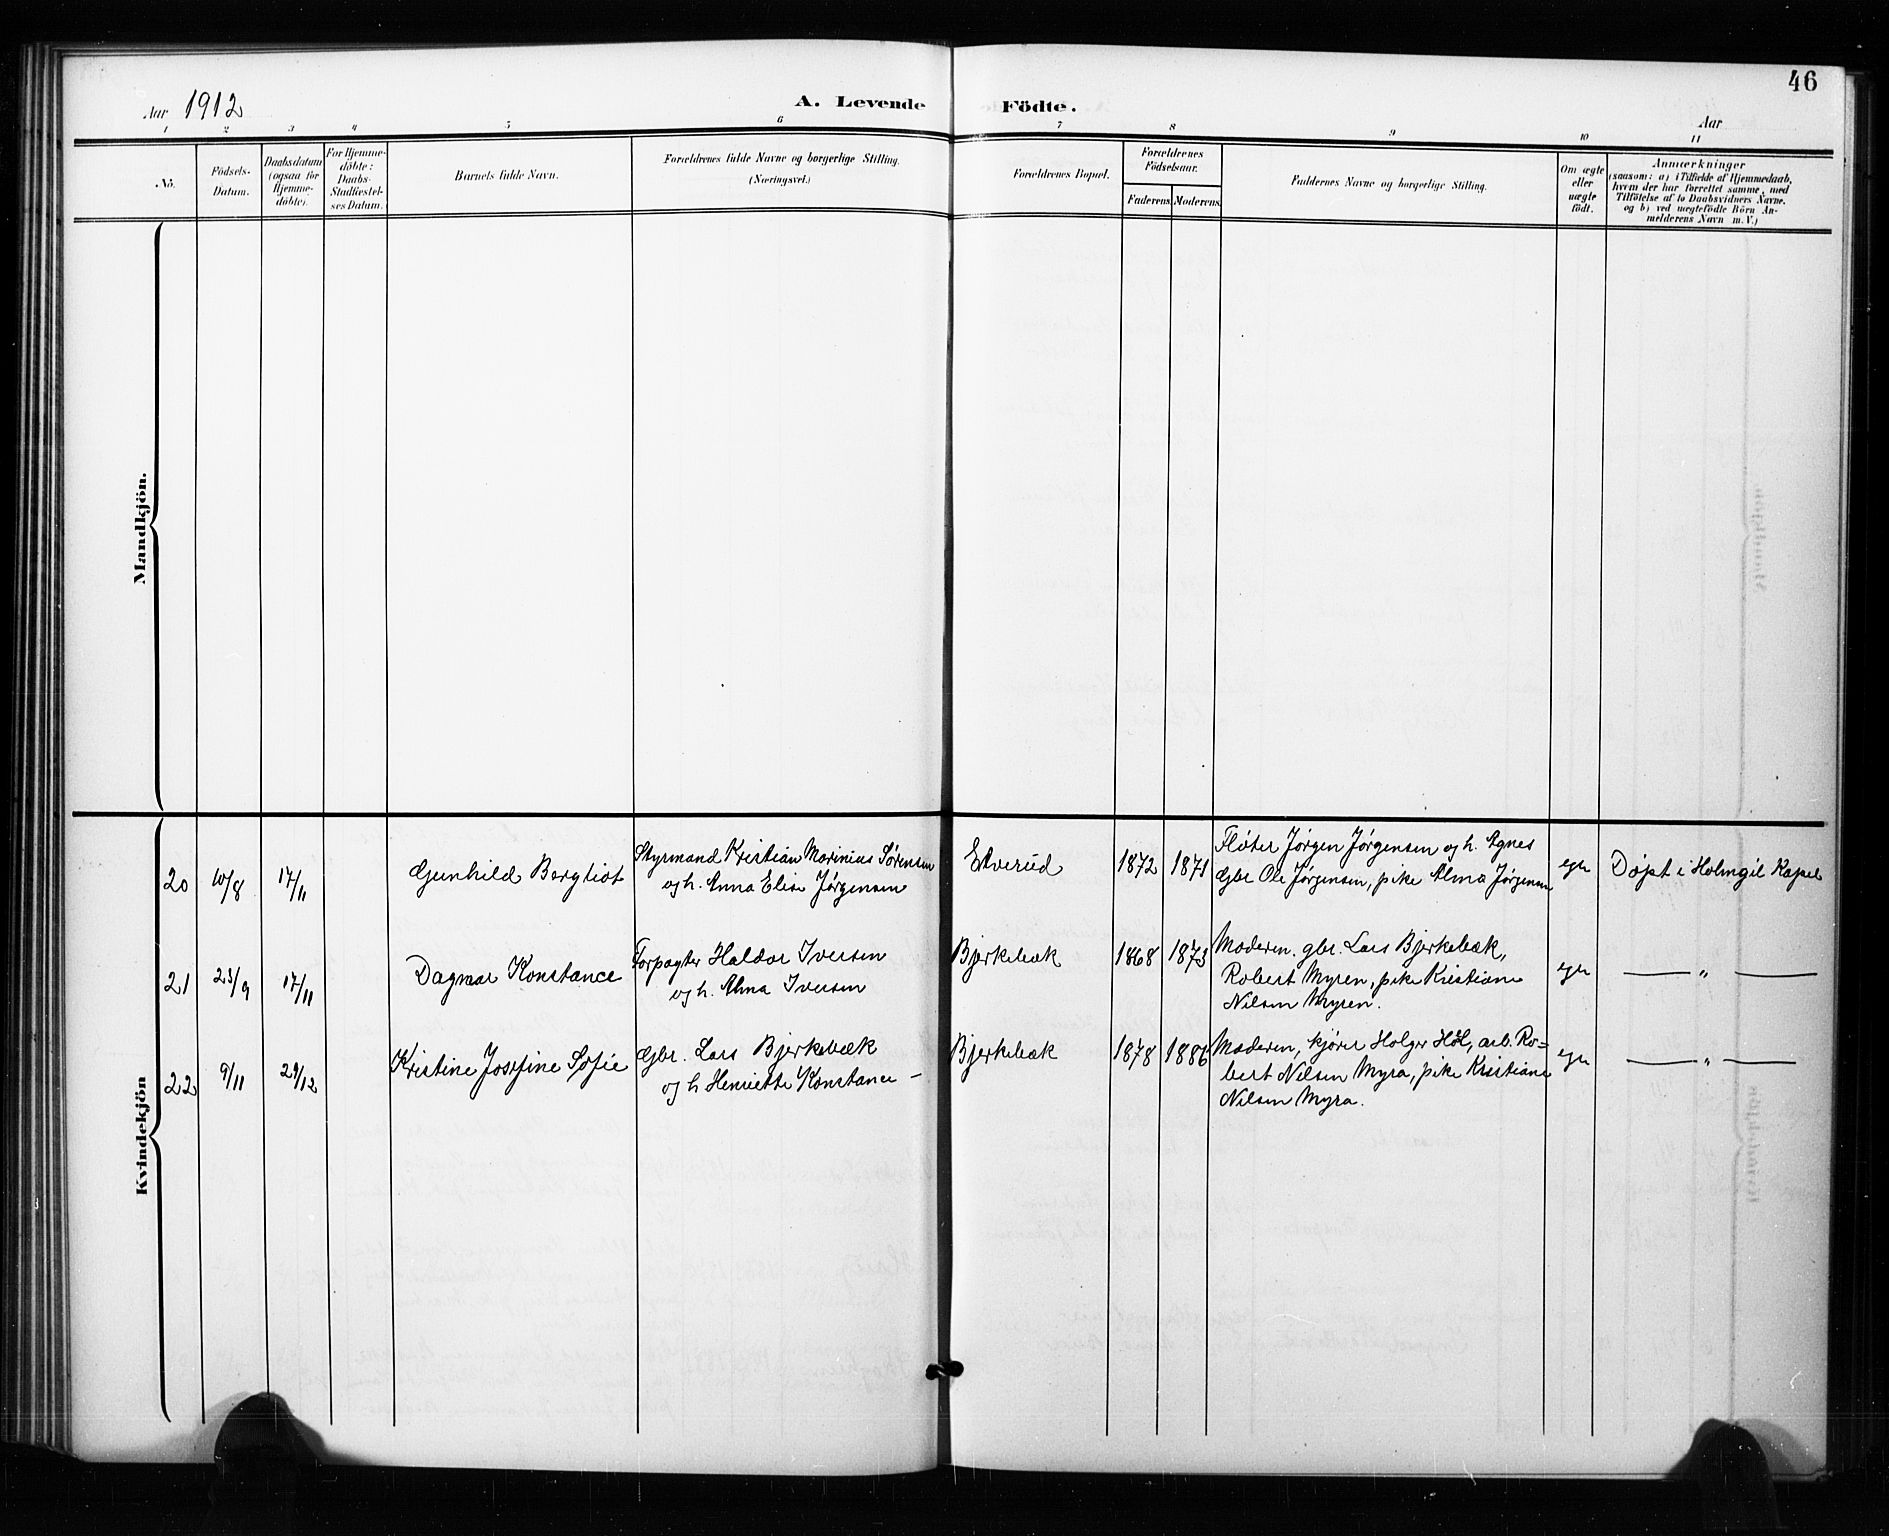 46
Aar 1912
A. Levende Födte.
Aar
1 2 3 4 5 6 7 8 9 10 11
No.
Födsels-
Datum.
Daabsdatum
(ogsaa for
Hjemme-
døbte).
For Hjemme-
døbte:
Daabs-
Stadfæstel-
ses Datum.
Barnets fulde Navn.
Forældrenes fulde Navne og borgerlige Stilling.
(Næringsvei.)
Forældrenes Bopæl.
Forældrenes
Födselsaar.
Faderens.
Moderens.
Faddernes Navne og borgerlige Stilling.
Om ægte
eller
uægte
født.
Anmærkninger
(saasom: a) i Tilfælde af Hjemmedaab,
hvem der har forrettet samme, med
Tilföielse af to Daabsvidners Navne.
og b) ved uægtefödte Börn An-
melderens Navn m. V.)
Mandkjön.
Kvindekjön
20 10/8 17/11 Gunhild Bergliot
Styrmand Kristian Marinius Sørensen
og h. Anna Elise Jørgensen
Elverud 1872 1871
Fløter Jørgen Jørgensen og h. Agnes
Gbr Ole Jørgensen, pike Alma Jørgensen
egte Døpt i Holmgil Kapel
21 23/9 17/11 Dagmar Konstance
Forpagter Haldor Iversen
og h. Alma Iversen
Bjerkebæk 1868 1873
Moderen. gbr. Lars Bjerkebæk,
Robert Myren, pike Kristiane
Nilsen Myren.
egte — " —
22 9/11 29/12 Kristine Josefine Sofie
Gbr. Lars Bjerkebæk
og h Henriette Konstance —
Bjerkebæk 1878 1886
Moderen, kjører Holger Høl, arb. Ro-
bert Nilsen Myra, pike Kristiane
Nilsen Myra.
egte — " —